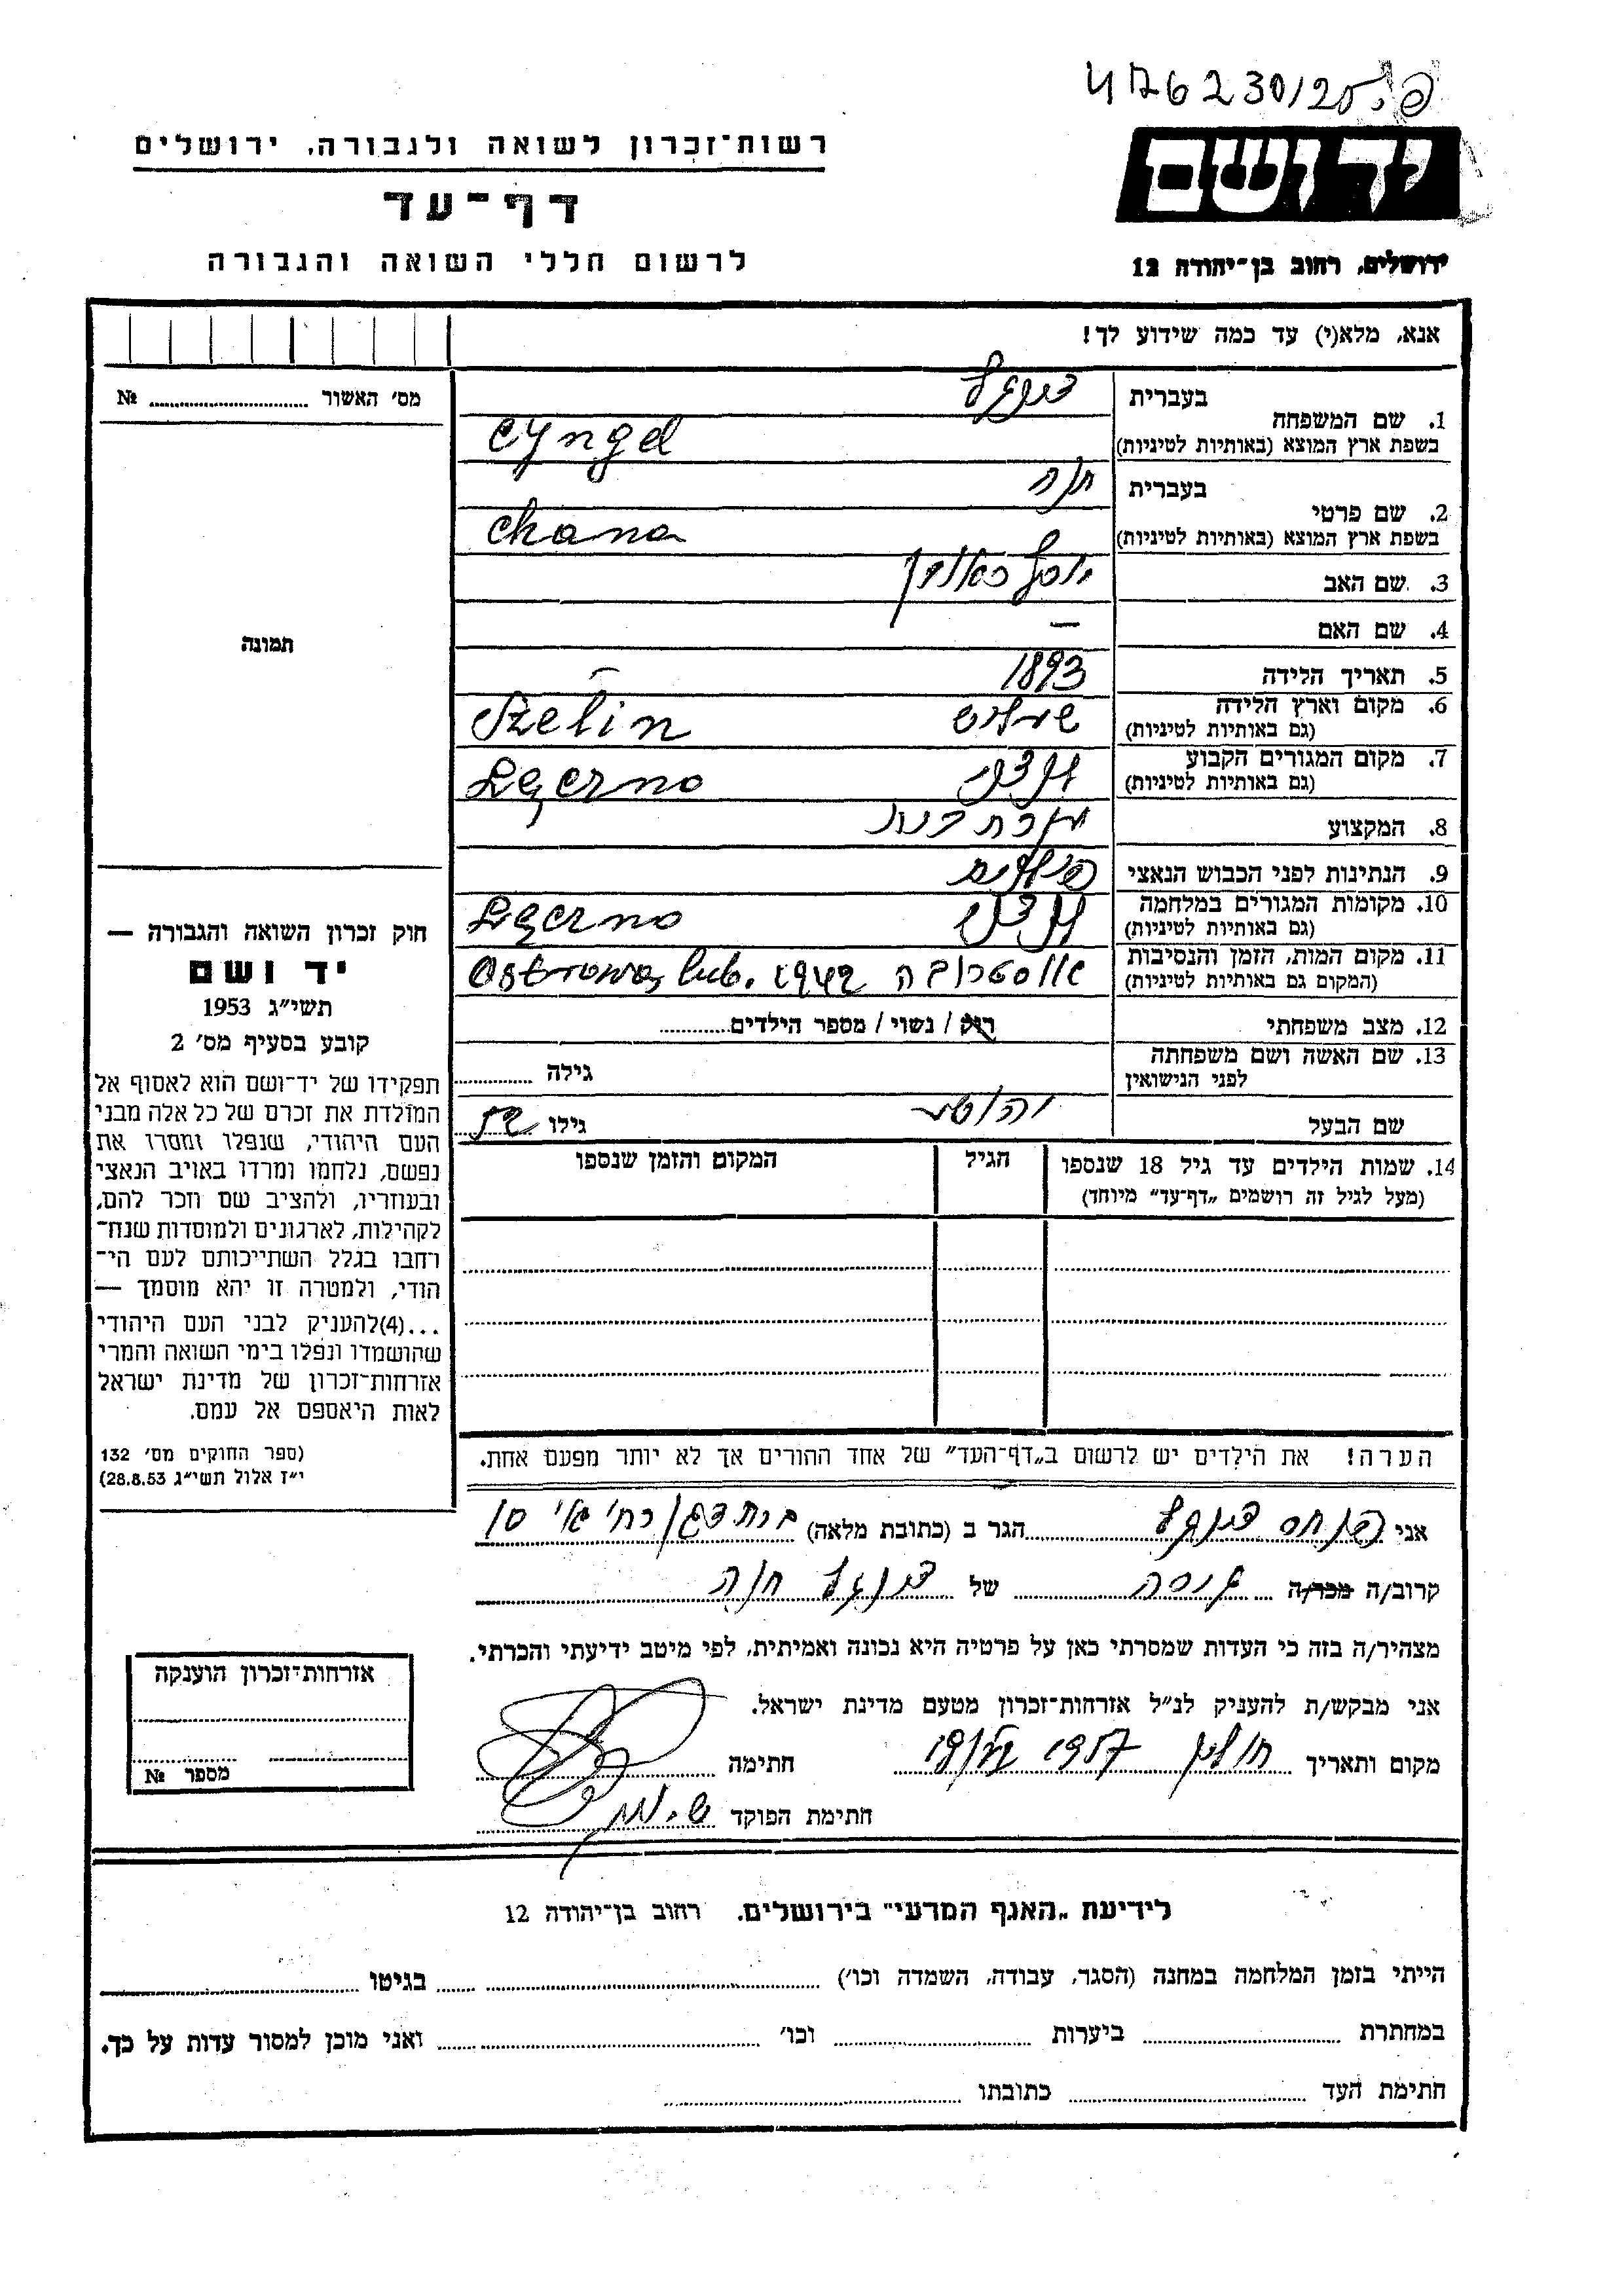 476230/205
רשות־זכרון לשואה ולגבורה, ירושלים
דף־עד
לרשום חללי השואה והגבורה
יד ושם
ירושלים, רחוב בן־יהודה 12
אנא, מלא(י) עד כמה שידוע לך!
מס׳ האשור № 
תמונה
1. שם המשפחה
בעברית צינגל
בשפת ארץ המוצא (באותיות לטיניות) Cyngel
2. שם פרטי
בעברית חנה
בשפת ארץ המוצא (באותיות לטיניות) Chana
3. שם האב יוסף
4. שם האם —
5. תאריך הלידה 1893
6. מקום וארץ הלידה
(גם באותיות לטיניות) Szelin
7. מקום המגורים הקבוע
(גם באותיות לטיניות) Lęcrno
8. המקצוע עקרת בית
9. הנתינות לפני הכבוש הנאצי פולנית
10. מקומות המגורים במלחמה
(גם באותיות לטיניות) Lęcrno
11. מקום המות, הזמן והנסיבות
(המקום גם באותיות לטיניות) אוסטרובה 1942 Ostrowa, lub.
12. מצב משפחתי רוק / נשוי / מספר הילדים
13. שם האשה ושם משפחתה
לפני הנישואין גילה
שם הבעל גילו 52
14. שמות הילדים עד גיל 18 שנספו הגיל המקום והזמן שנספו
(מעל לגיל זה רושמים „דף־עד״ מיוחד)
הערה! את הילדים יש לרשום ב„דף־העד״ של אחד ההורים אך לא יותר מפעם אחת.
חוק זכרון השואה והגבורה —
יד ושם
תשי״ג 1953
קובע בסעיף מס׳ 2
תפקידו של יד־ושם הוא לאסוף אל
המולדת את זכרם של כל אלה מבני
העם היהודי, שנפלו ומסרו את
נפשם, נלחמו ומרדו באויב הנאצי
ובעוזריו, ולהציב שם וזכר להם,
לקהילות, לארגונים ולמוסדות שנח־
רחבו בגלל השתייכותם לעם הי־
הודי, ולמטרה זו יהא מוסמך —
...(4)להעניק לבני העם היהודי
שהושמדו ונפלו בימי השואה והמרי
אזרחות־זכרון של מדינת ישראל
לאות היאספם אל עמם.
(ספר החוקים מס׳ 132
י״ז אלול תשי״ג 28.8.53)
אני פנחס צינגל הגר ב (כתובת מלאה)
קרוב/ה מכר/ה גיסה של צינגל חנה
מצהיר/ה בזה כי העדות שמסרתי כאן על פרטיה היא נכונה ואמיתית, לפי מיטב ידיעתי והכרתי.
אני מבקש/ת להעניק לנ״ל אזרחות־זכרון מטעם מדינת ישראל.
מקום ותאריך חולון 1957 חתימה
חתימת הפוקד
אזרחות־זכרון הוענקה
מספר №
לידיעת „האגף המדעי״ בירושלים, רחוב בן־יהודה 12
הייתי בזמן המלחמה במחנה (הסגר, עבודה, השמדה וכו׳) בגיטו
במחתרת ביערות וכו׳ ואני מוכן למסור עדות על כך.
חתימת העד כתובתו